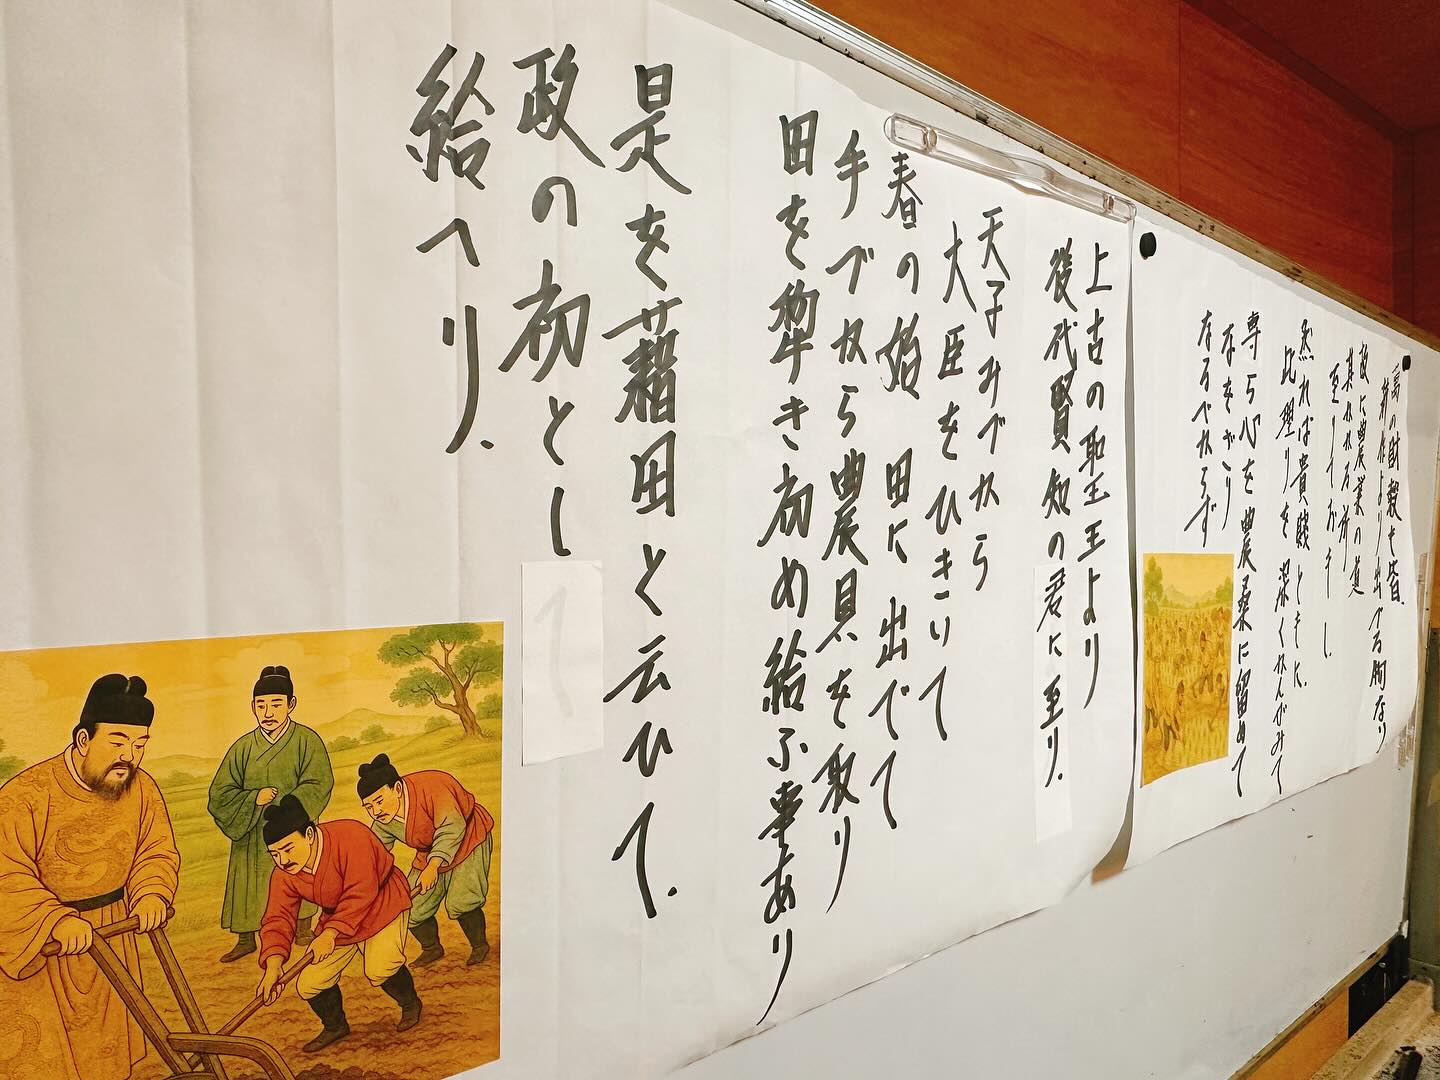 萬の財穀も皆
耕作より出づる物なり
故に農業の道
其かかる所
至りておもし
然れば貴賤ともに
此理りを深くかんがみて
専ら心を農桑に留めて
なをざり
なるべからず
上古の聖王より
後代賢知の君に至り、
天子みづから
大臣をひきいて
春の始 田に出でて
手づから農具を取り
田を犂き初め給ふ事あり
是を藉田と云ひて、
政の初とし
給へり、